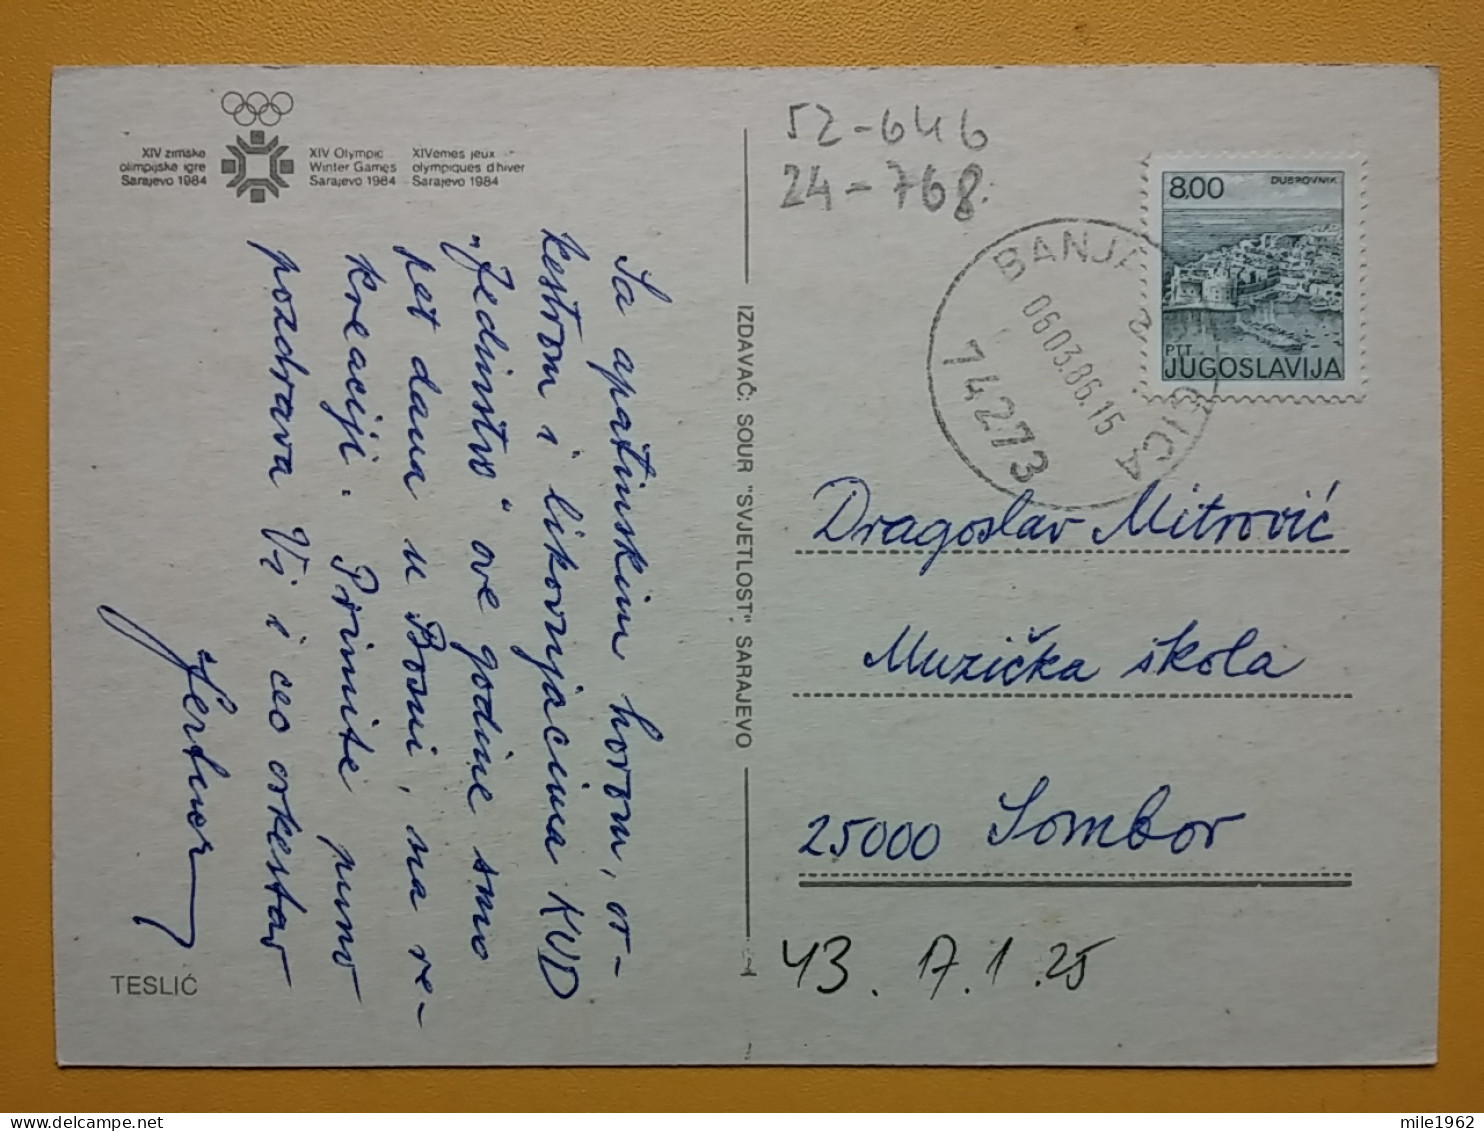 XIV zimske
olimpijske igre
Sarajevo 1984
XIV Olympic
Winter Games
Sarajevo 1984
XIVemes jeux
olympiques d'hiver
Sarajevo 1984
Sa apatinskim horom, or-
kestrom i likovnjacima KUD
„Jedinstvo" ove godine smo
pet dana u Bosni, na re-
kreaciji. Primite puno
pozdrava Vi i ceo orkestar
TESLIĆ
IZDAVAČ: SOUR "SVJETLOST", SARAJEVO
52-646
24-768.
8.00 DUBROVNIK
PTT
JUGOSLAVIJA
BANJA
06.03.86.15
74273
Dragoslav Mitrović
Muzička škola
25000 Sombor
43. 17.1.25
mile1962